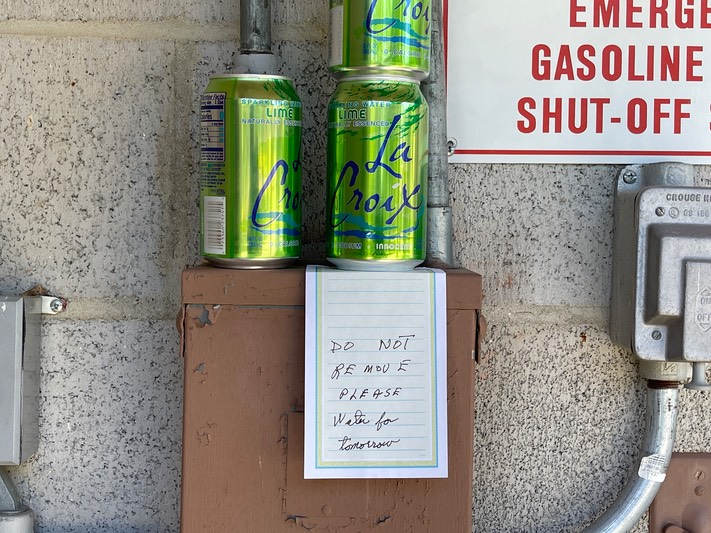 La
Croix
EMERGE
GASOLINE
SHUT-OFF S
SPARKLING WATER
LIME
NATURALLY ESSENCED
La
Croix
LING WATER
LIME
La
Croix
INNOCENT
CROUSE H
DO NOT
REMOVE
PLEASE
Water for
tomorrow